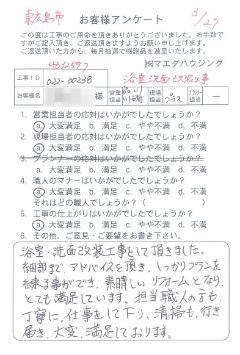 東広島市
お客様アンケート
2/27
この度は工事のご用命を頂きありがとうございました。お手数で
すがご記入頂き、ご返送頂きますようお願い申し上げます。
ご返送頂いた方には、毎月抽選で感謝品を進呈いたします。
㈱マエダハウジング
工事ID 022-00238 浴室洗面改装工事
お客様名 様 営業担当 現場担当 プランナー担当 ―
1. 営業担当者の応対はいかがでしたでしょうか?
ⓐ大変満足 b.満足 c.やや不満 d.不満
2. 現場担当者の応対はいかがでしたでしょうか?
ⓐ大変満足 b.満足 c.やや不満 d.不満
3. プランナーの応対はいかがでしたでしょうか?
a.大変満足 b.満足 c.やや不満 d.不満
4. 職人のマナーはいかがでしたでしょうか?
ⓐ大変満足 b.満足 c.やや不満 d.不満
それはどの職人でしょうか?( )
5. 工事の仕上がりはいかがでしたでしょうか?
ⓐ大変満足 b.満足 c.やや不満 d.不満
6. その他、ご意見・ご要望をお書き下さい。
浴室・洗面改装工事をして頂きました。
細部まで、アドバイスを頂き、しっかりプランを
練る事ができ、素晴しいリフォームとなり
とても満足しています。担当職人の方も、
丁寧に、仕事をして下り、清掃も、行き
届き、大変、満足しております。